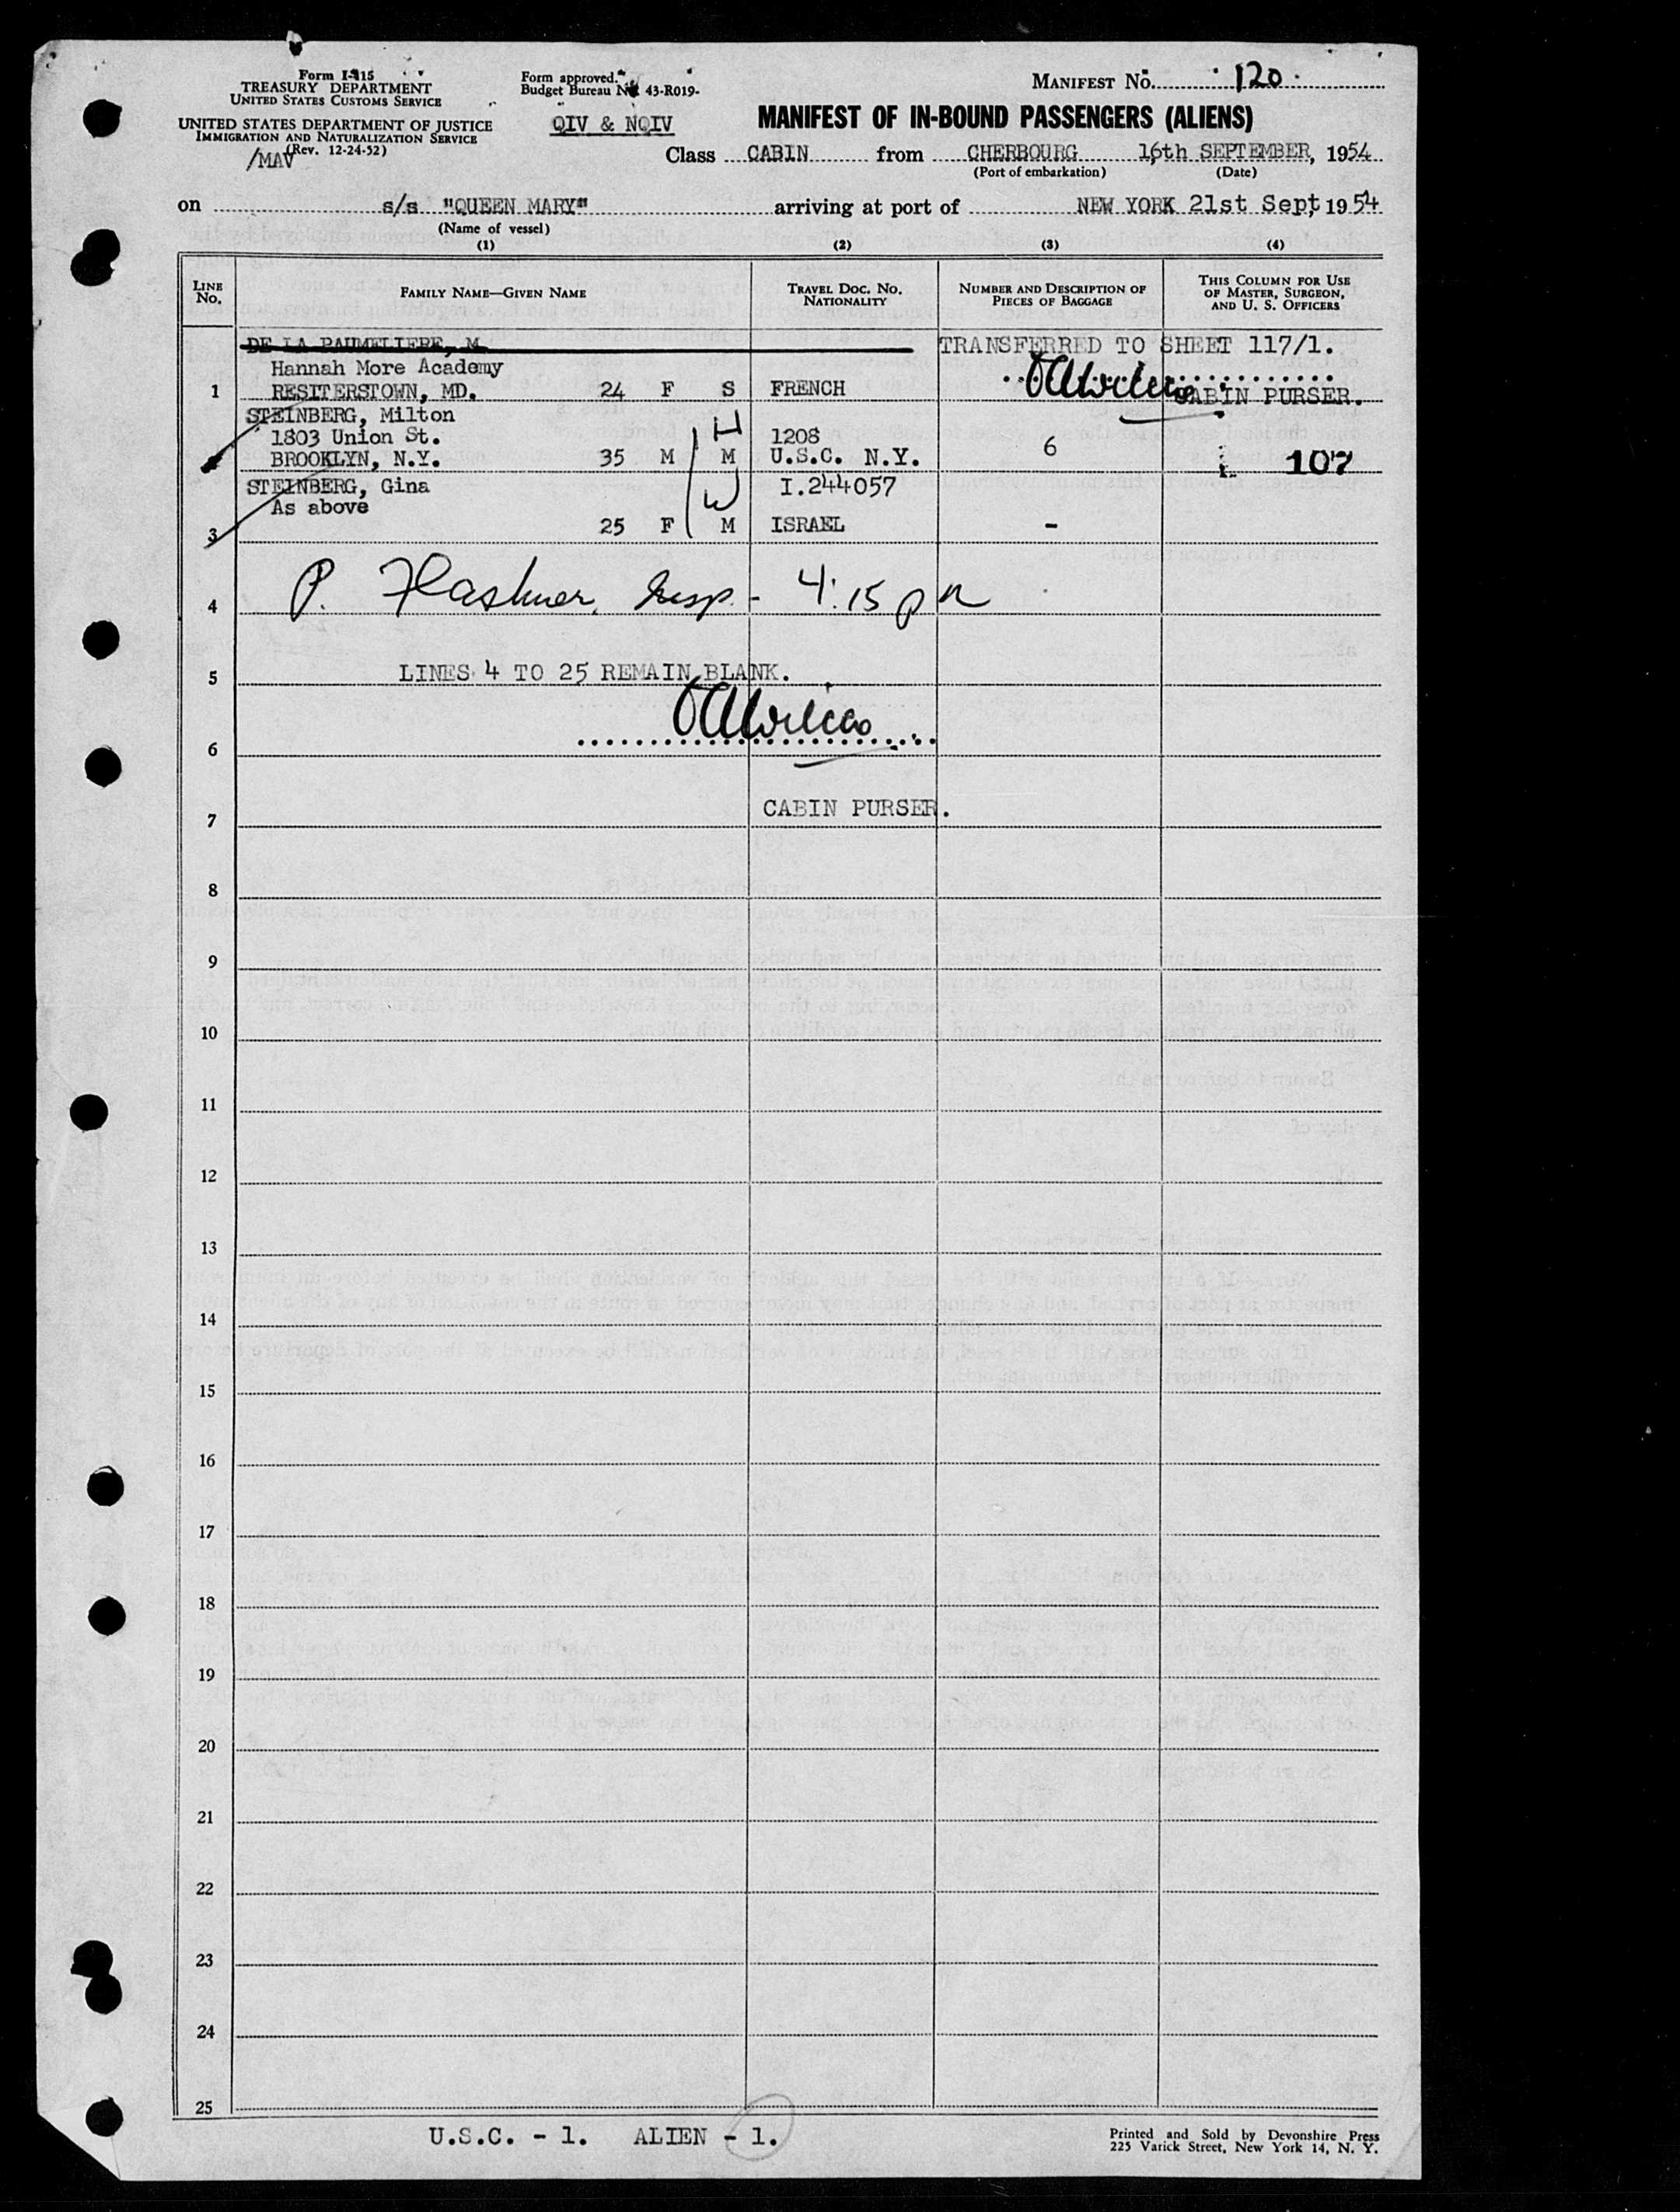 Form I-415
TREASURY DEPARTMENT
UNITED STATES CUSTOMS SERVICE
UNITED STATES DEPARTMENT OF JUSTICE
IMMIGRATION AND NATURALIZATION SERVICE
(Rev. 12-24-52)
/MAV
Form approved.
Budget Bureau No. 43-R019-
QIV & NQIV
MANIFEST NO. 120
MANIFEST OF IN-BOUND PASSENGERS (ALIENS)
Class CABIN from CHERBOURG 16th SEPTEMBER, 1954
(Port of embarkation) (Date)
on s/s "QUEEN MARY" arriving at port of NEW YORK 21st Sept 1954
(Name of vessel)
(1) (2) (3) (4)
LINE No. FAMILY NAME—GIVEN NAME TRAVEL DOC. NO. NATIONALITY NUMBER AND DESCRIPTION OF PIECES OF BAGGAGE THIS COLUMN FOR USE OF MASTER, SURGEON, AND U. S. OFFICERS
DE LA PAUMELIERE, M TRANSFERRED TO SHEET 117/1.
Hannah More Academy
1 RESITERSTOWN, MD. 24 F S FRENCH CABIN PURSER.
STEINBERG, Milton H
1803 Union St. 1208
BROOKLYN, N.Y. 35 M M U.S.C. N.Y. 6 107
STEINBERG, Gina W I.244057
As above
3 25 F M ISRAEL -
4 P. Insp. - 4:15 pm
5 LINES 4 TO 25 REMAIN BLANK.
6
7 CABIN PURSER.
8
9
10
11
12
13
14
15
16
17
18
19
20
21
22
23
24
25
U.S.C. - 1. ALIEN - 1.
Printed and Sold by Devonshire Press
225 Varick Street, New York 14, N. Y.